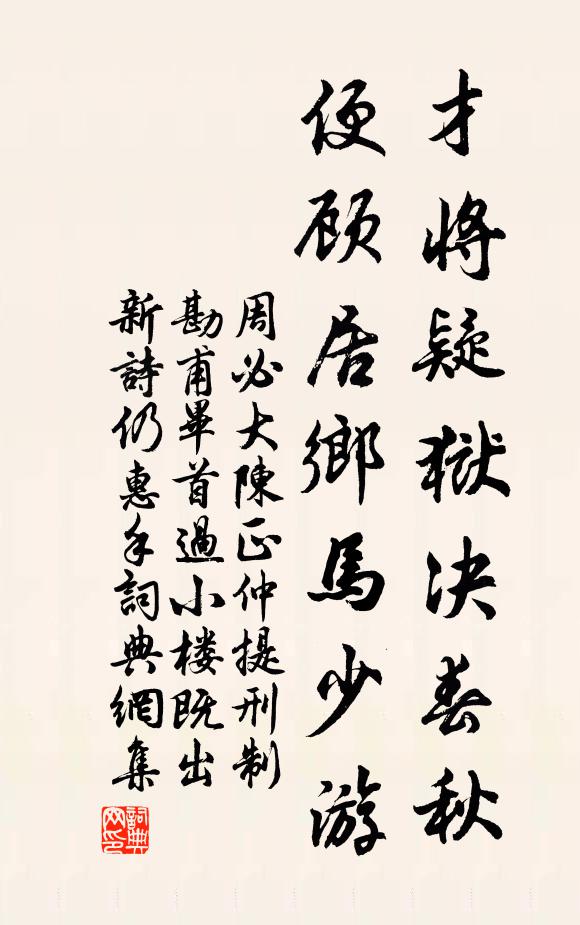 才將疑獄決春秋
便顧居鄉馬少游
周必大陳正仲提刑制
勘甫畢首過小楼既出
新詩仍惠手詞典網集
詞典網印